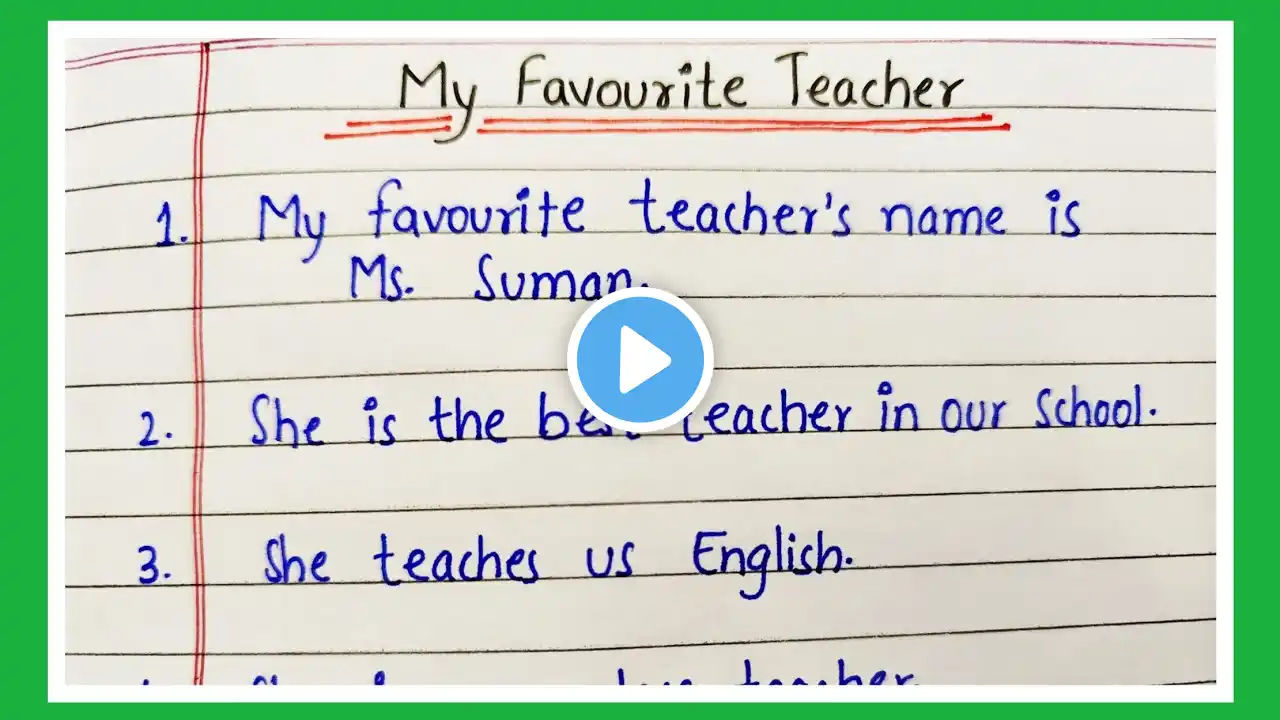 My Favourite Teacher
1. My favourite teacher's name is
Ms. Suman.
2. She is the best teacher in our School.
3. She teaches us English.
teacher.